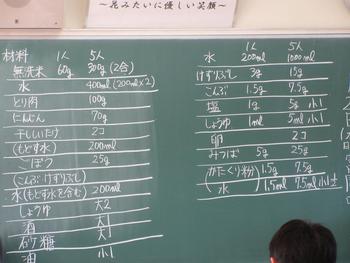 ～花みたいに優しい笑顔～
材料 1人 5人
無洗米 60g 300g (2合)
水 400ml (200ml×2)
とり肉 100g
にんじん 70g
干ししいたけ 2コ
(もどす水) 200ml
ごぼう 25g
(こんぶ けずりぶし)
水(もどす水を含む) 200ml
しょうゆ 大2
酒 大1
砂糖 大1
油 小1
1人 5人
水 200ml 1000ml
けずりぶし 3g 15g
こんぶ 1.5g 7.5g
塩 1g 5g 小1
しょうゆ 1ml 5ml 小1
卵 2コ
みつば 5g 25g
かたくり粉 1.5g 7.5g
水 1.5ml 7.5ml 小1